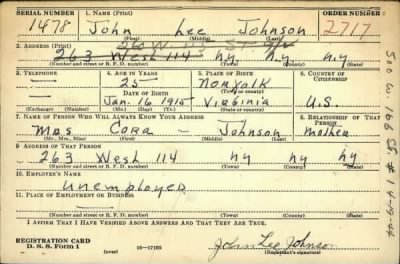 SERIAL NUMBER 1. NAME (Print) ORDER NUMBER
1478 John Lee Johnson 2717
(First) (Middle) (Last)
2. ADDRESS (Print)
263 West 114 n.y. n.y. n.y
(Number and street or R. F. D. number) (Town) (County) (State)
3. TELEPHONE 4. AGE IN YEARS 5. PLACE OF BIRTH 6. COUNTRY OF CITIZENSHIP
— 25 Norfolk
DATE OF BIRTH (Town or county)
— Jan. 16 1915 Virginia U.S.
(Exchange) (Number) (Mo.) (Day) (Yr.) (State or country)
7. NAME OF PERSON WHO WILL ALWAYS KNOW YOUR ADDRESS 8. RELATIONSHIP OF THAT PERSON
Mrs Cora - Johnson Mother
(Mr., Mrs., Miss) (First) (Middle) (Last)
9. ADDRESS OF THAT PERSON
263 West 114 ny ny ny
(Number and street or R. F. D. number) (Town) (County) (State)
10. EMPLOYER'S NAME
Unemployed
11. PLACE OF EMPLOYMENT OR BUSINESS
—
(Number and street or R. F. D. number) (Town) (County) (State)
I AFFIRM THAT I HAVE VERIFIED ABOVE ANSWERS AND THAT THEY ARE TRUE.
REGISTRATION CARD
D. S. S. Form 1 (over) 16—17105 John Lee Johnson